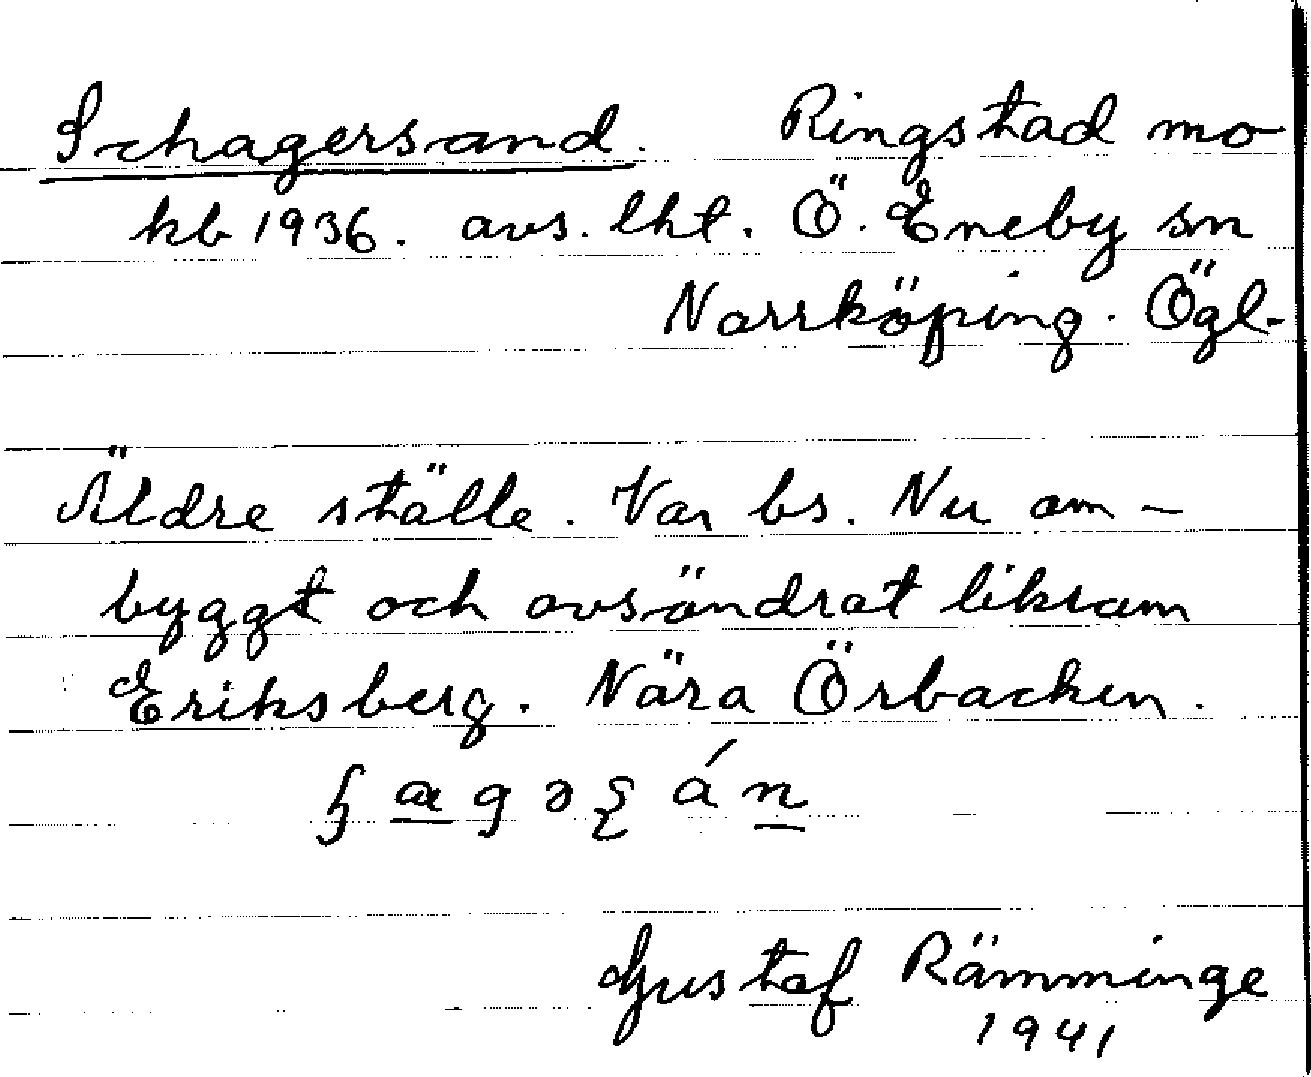 Schagersand. Ringstad mo
kb 1936. avs. lht. Ö. Eneby sn
Norrköping. Ögl.
Äldre ställe. Var bs. Nu om-
byggt och avsöndrat liksom
Eriksberg. Nära Örbacken.
Gustaf Rämminge
1941